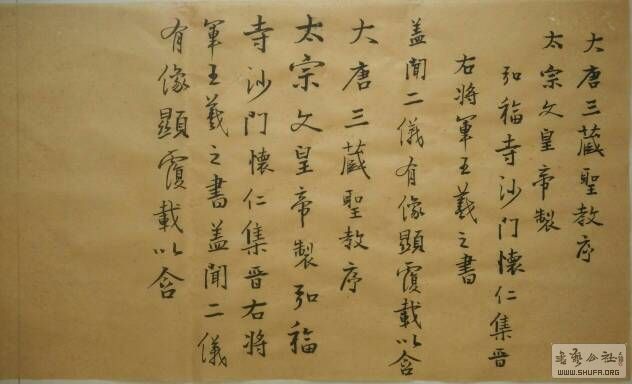 大唐三藏聖教序
太宗文皇帝製
弘福寺沙門懷仁集晉
右將軍王羲之書
盖聞二儀有像顯覆載以含
大唐三藏聖教序
太宗文皇帝製弘福
寺沙門懷仁集晉右將
軍王羲之書盖聞二儀
有像顯覆載以含
WWW.SHUFA.ORG